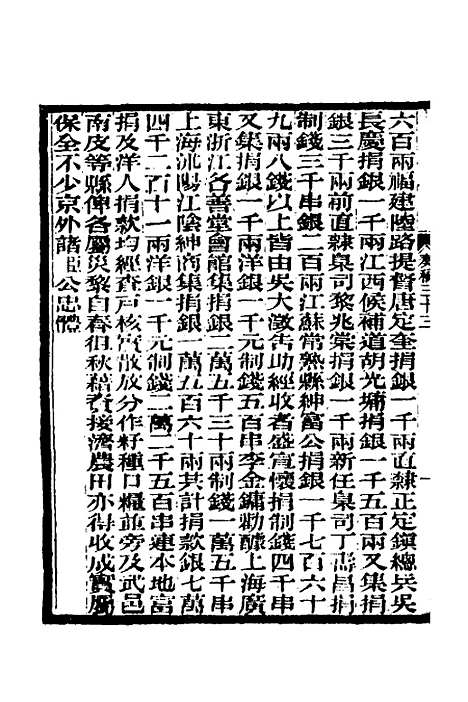 六百兩福建陸路提督唐定奎捐銀一千兩直隸正定鎮總兵吳
長慶捐銀一千兩江西候補道胡光墉捐銀一千五百兩又集捐
銀三千兩前直隸臬司黎兆棠捐銀一千兩新任臬司丁壽昌捐
制錢三千串銀二百兩江蘇常熟縣紳富公捐銀一千七百六十
九兩八錢以上皆由吳大澂告助經收者盛宣懷捐制錢四千串
又集捐銀一千兩洋銀一千元制錢五百串李金鏞勸醵上海廣
東浙江各善堂會館集捐銀二萬五千三十兩制錢一萬五千串
上海沭陽江陰紳商集捐銀一萬九百六十兩共計捐款銀七萬
四千二百十一兩洋銀一千元制錢二萬二千五百串連本地富
捐及洋人捐款均經查戶核實散放分作籽種口糧並旁及武邑
南皮等縣俾各屬災黎自春徂秋藉資接濟農田亦得收成實屬
保全不少京外諸臣公忠體
奏稿三十三